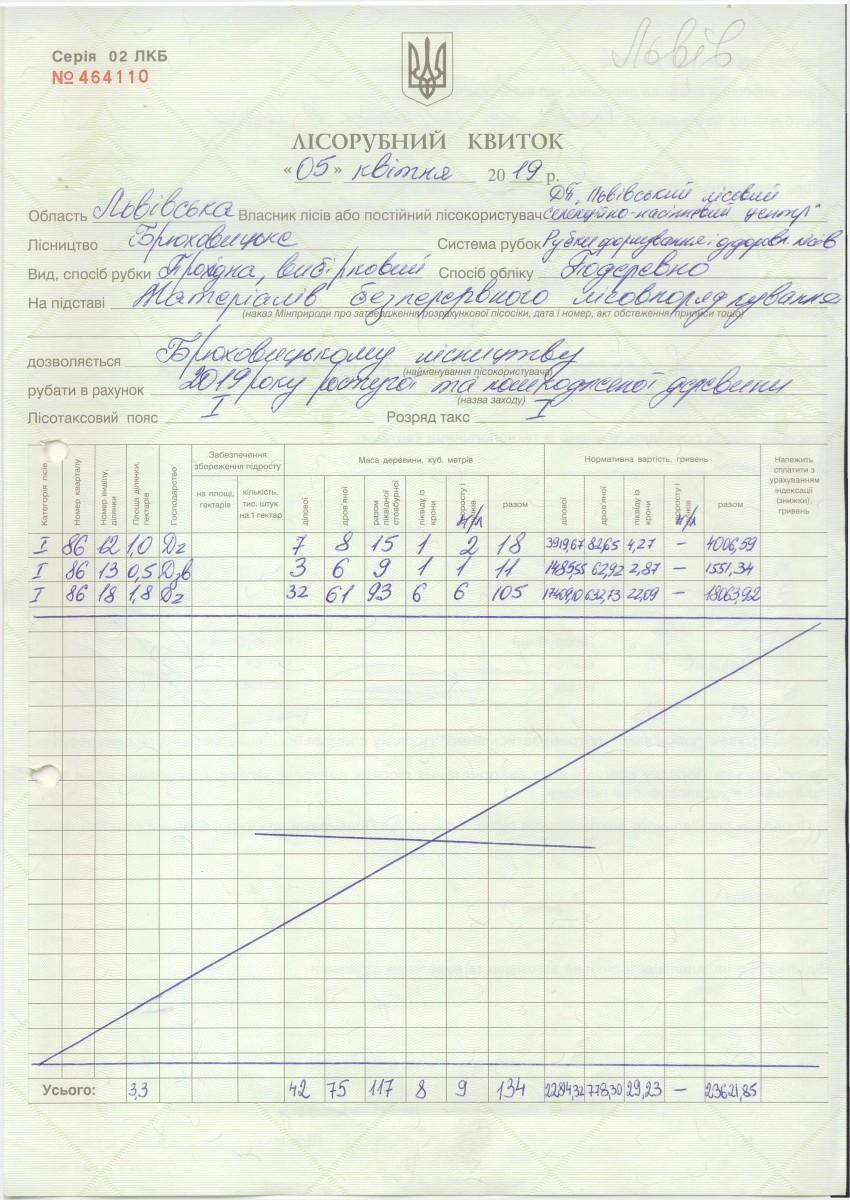 Львів
Серія 02 ЛКБ
№ 464110
ЛІСОРУБНИЙ КВИТОК
«05» квітня 2019 р.
ДП „Львівський лісовий
Область Львівська Власник лісів або постійний лісокористувач селекційно-насіннєвий центр"
Лісництво Брюховицьке Система рубок Рубки формування і оздоровл. лісів
Вид, спосіб рубки Прохідна, вибірковий Спосіб обліку Подеревно
На підставі Матеріалів безперервного лісовпорядкування
(наказ Мінприроди про затвердження розрахункової лісосіки, дата і номер, акт обстеження, приписи тощо)
дозволяється Брюховицькому лісництву
(найменування лісокористувача)
рубати в рахунок 2019 року ростучої та пошкодженої деревини
(назва заходу)
Лісотаксовий пояс I Розряд такс I
Категорія лісів Номер кварталу Номер виділу, ділянки Площа ділянки, гектарів Господарство Забезпечення збереження підросту Маса деревини, куб. метрів Нормативна вартість, гривень Належить сплатити з урахуванням індексації (знижки), гривень
на площі, гектарів кількість, тис. штук на 1 гектар ділової дров'яної разом ліквідної стовбурної ліквіду із крони хворосту і н/л разом ділової дров'яної ліквіду із крони хворосту і н/л разом
I 86 12 1,0 Дг 7 8 15 1 2 18 3919,67 82,65 4,27 – 4006,59
I 86 13 0,5 Дзв 3 6 9 1 1 11 1485,55 62,92 2,87 – 1551,34
I 86 18 1,8 Дг 32 61 93 6 6 105 17409,10 632,73 22,09 – 18063,92
Усього: 3,3 42 75 117 8 9 134 22814,32 778,30 29,23 – 23621,85